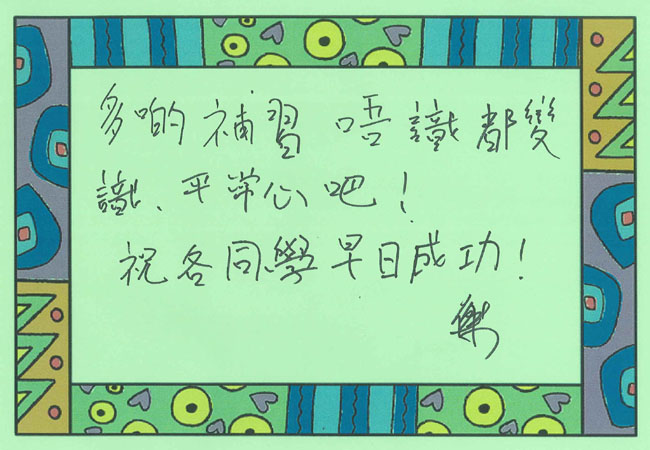 多啲補習 唔識都變
識、平常心吧！
祝各同學早日成功！